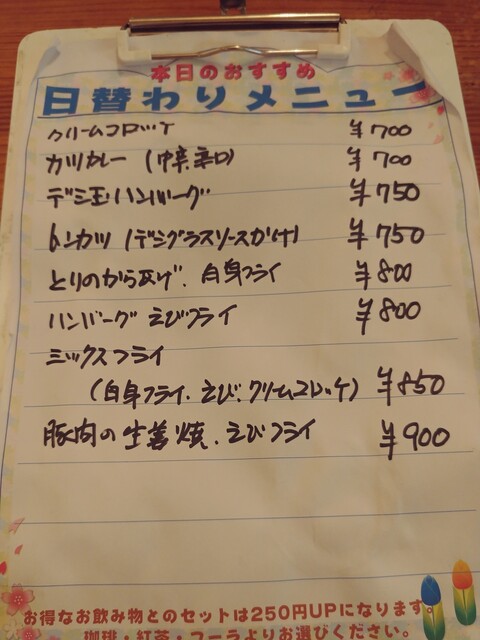 本日のおすすめ
日替わりメニュー
クリームコロッケ ¥700
カツカレー (中辛口) ¥700
デミ玉ハンバーグ ¥750
トンカツ (デミグラスソースかけ) ¥750
とりのからあげ、白身フライ ¥800
ハンバーグ えびフライ ¥800
ミックスフライ
(白身フライ、えび、クリームコロッケ) ¥850
豚肉の生姜焼、えびフライ ¥900
お得なお飲み物とのセットは250円UPになります。
珈琲・紅茶・コーラよりお選びください。